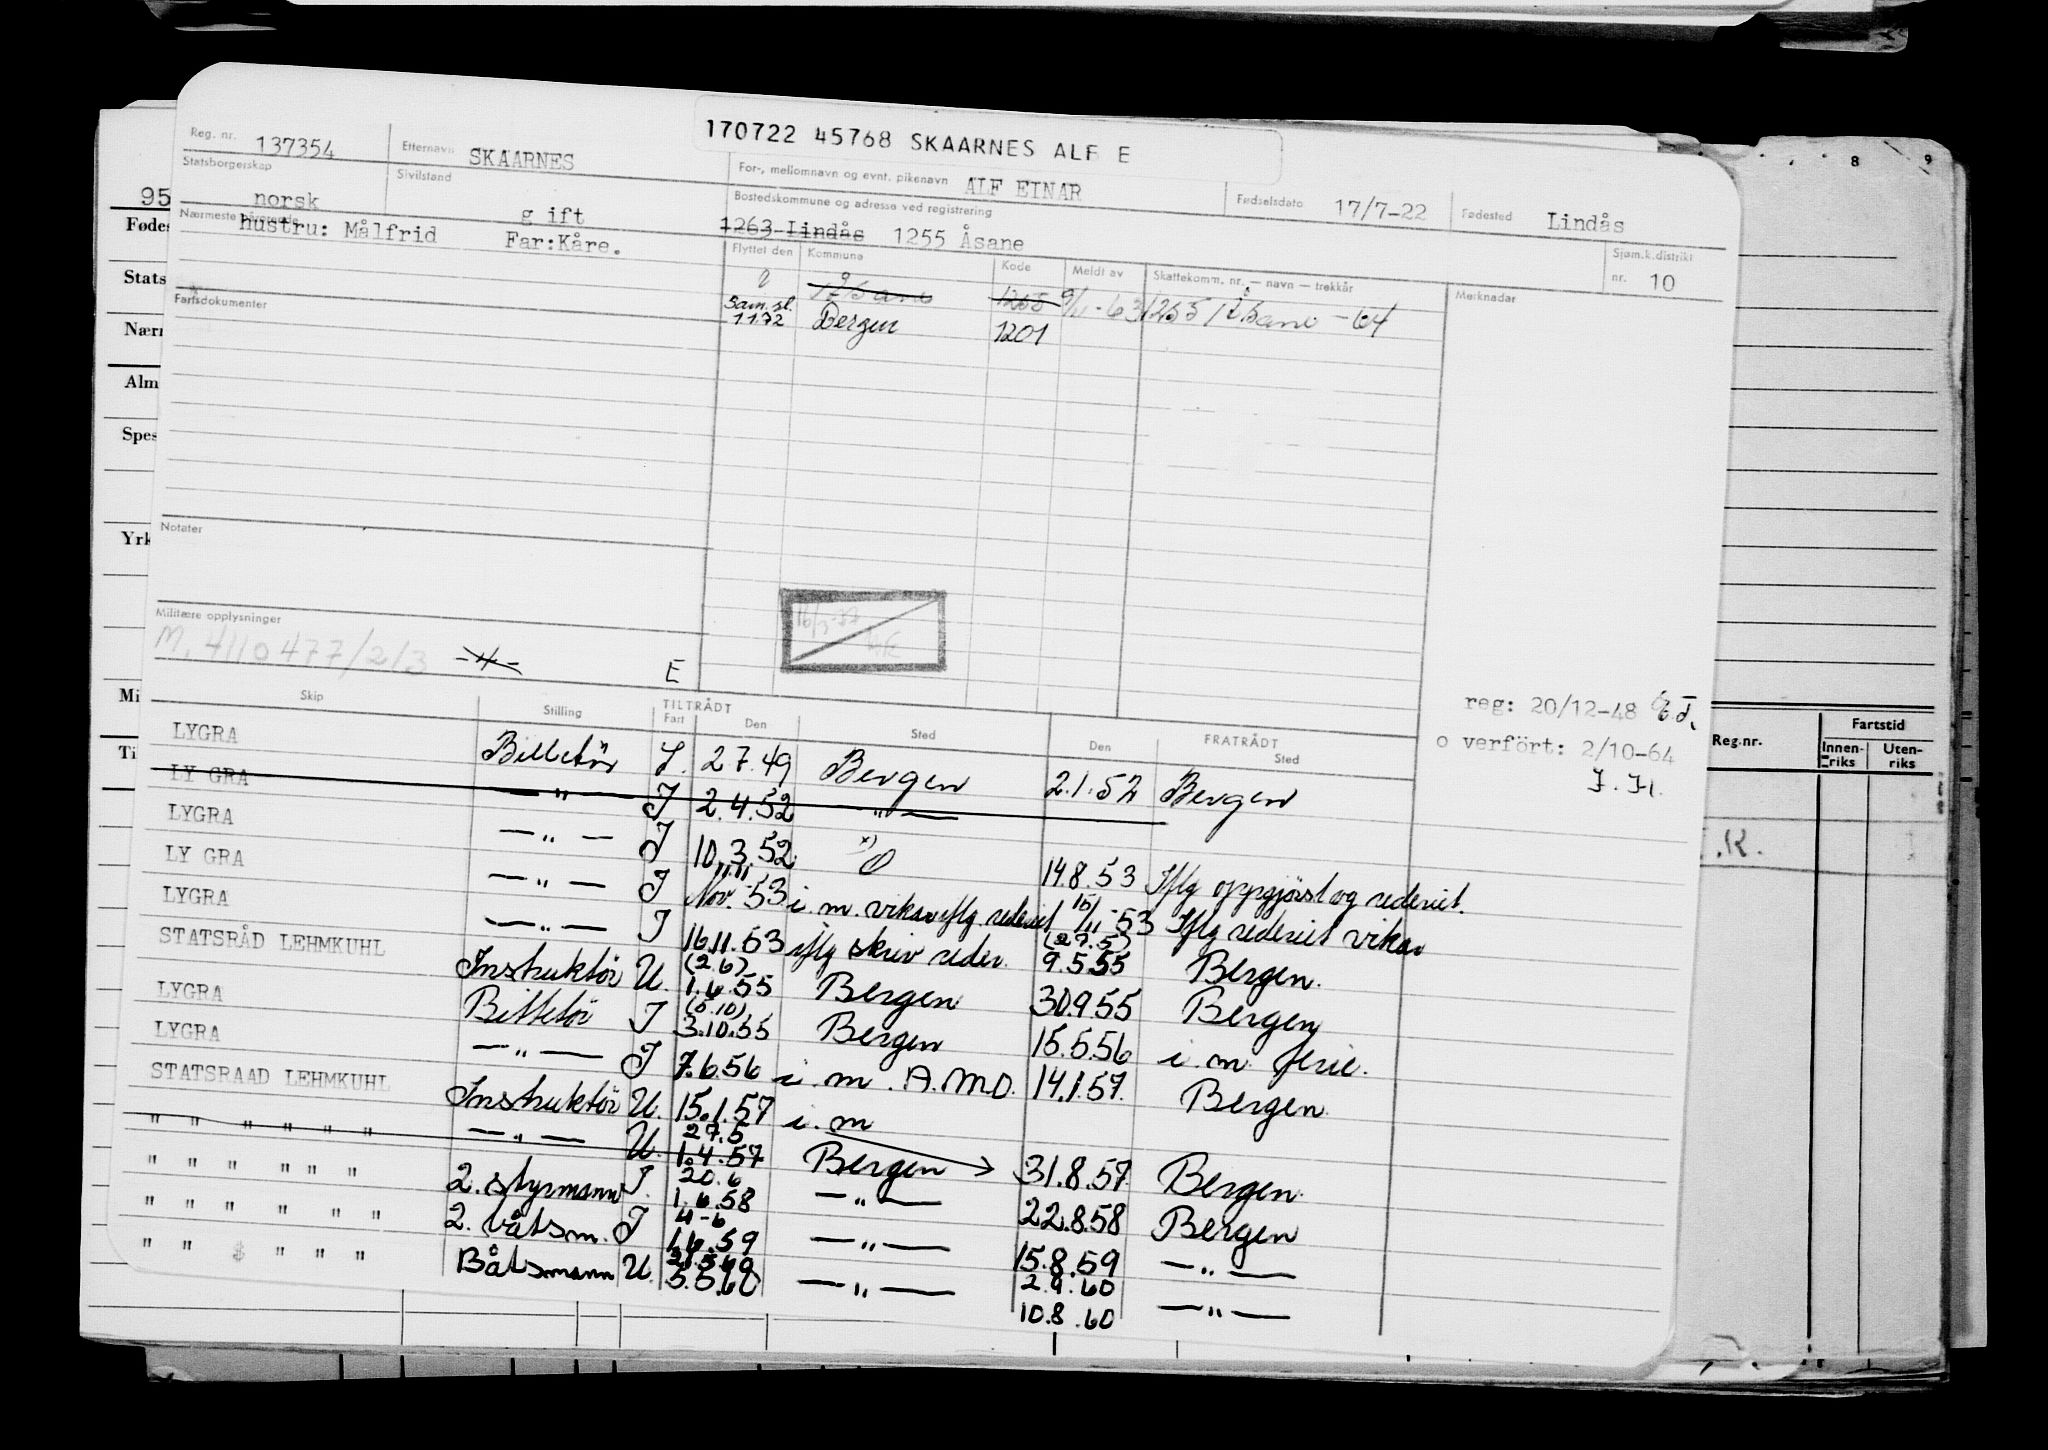 170722 45768 SKAARNES ALF E
Reg. nr. 137354 Etternavn SKAARNES For-, mellomnavn og evnt. pikenavn ALF EINAR Fødselsdato 17/7-22 Fødested Lindås
Statsborgerskap norsk Sivilstand g ift Bostedskommune og adresse ved registrering 1263 Lindås 1255 Åsane Sjøm.k.distrikt nr. 10
Nærmeste pårørende hustru: Målfrid Far:Kåre.
Flyttet den Kommune Kode Meldt av Skattekomm. nr. — navn — trekkår Merknader
Åsane 1255 9/11-63 1255 Åsane -64
Sam.sl. 1172 Bergen 1201
Fartsdokumenter
Notater
Militære opplysninger
M. 4110477/2/3 E
reg: 20/12-48
o verført: 2/10-64
Skip Stilling TILTRÅDT Fart Den Sted FRATRÅDT Den Sted
LYGRA Billetør 2.7.49 Bergen 2.1.52 Bergen
LY GRA — " — I 2.4.52 — " —
LYGRA — " — I 10.3.52 14.8.53 Iflg oppgjørst og rederiet.
LY GRA — " — I Nov. 53 i.m. vikar iflg rederiet 15/11-53 Iflg rederiet vikar
LYGRA — " — I 16.11.53 iflg skriv reder. (27.5) 9.5.55 Bergen.
STATSRÅD LEHMKUHL Instruktør U. (2.6) 1.6.55 Bergen 30.9.55 Bergen
LYGRA Billetør I (5.10) 3.10.55 Bergen 15.5.56 i.m. ferie.
LYGRA — " — I 7.6.56 i.m. A.M.O. 14.1.57. Bergen
STATSRAAD LEHMKUHL Instruktør U. 15.1.57 i.m
" " " " " " — " — U. 27.5 1.4.57 Bergen 31.8.57 Bergen
" " " " " " 2. styrmann I. 20.6 1.6.58 — " — 22.8.58 Bergen
" " " " " " 2. båtsm. I 4-6 1.6.59 — " — 15.8.59 — " —
" " " " " Båtsmann U. 5.5.60 — " — 2.9.60
10.8.60 — " —
95
Fødes
Stats
Nærn
Alm
Spes
Yrk
Mi
Ti
8 9
Reg.nr. Fartstid
Innen-riks Uten-riks
.K.